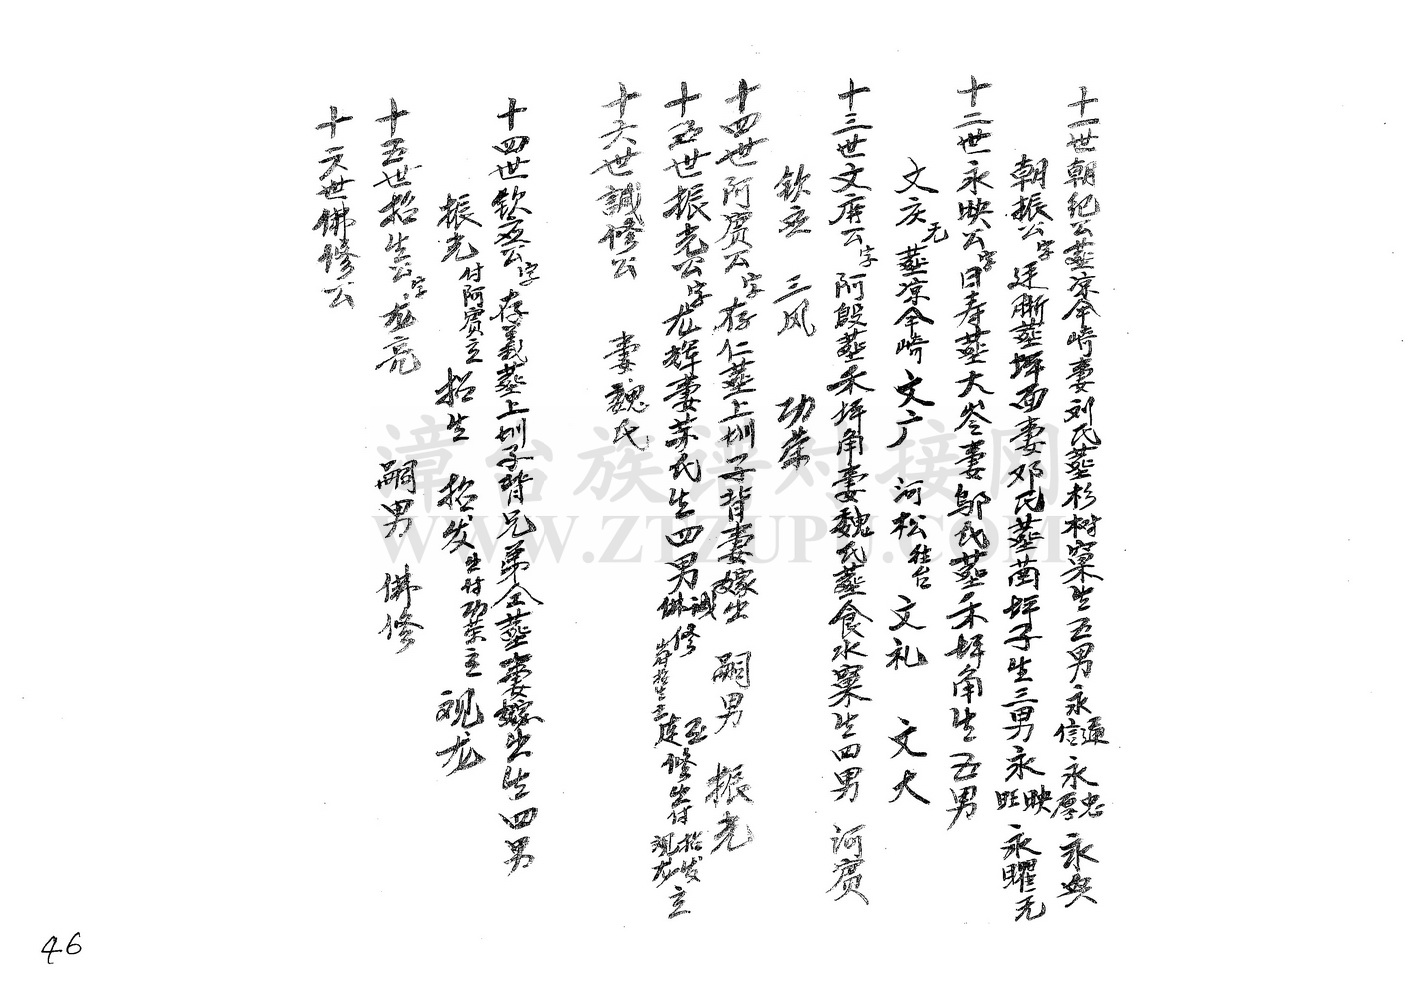 十一世朝纪公葬凉伞崎妻刘氏葬杉树窠生五男永通信永忠厚永兴
朝振公字廷断葬坪面妻邓氏葬茜坪子生三男永映旺永曜无
十二世永映公字日寿葬大岺妻邬氏葬禾坪角生五男
文庆无葬凉伞崎文广河松往台文礼文大
十三世文庆公字阿殷葬禾坪角妻魏氏葬食水窠生四男阿賨
钦立三风功荣
十四世阿賨公字存仁葬上圳子背妻嫁出嗣男振尧
十五世振尧公字龙辉妻葉氏生四男誠佛修出付招生立廷修出付招发观龙立
十六世誠修公妻魏氏
十四世钦立公字存義葬上圳子背兄弟仝葬妻嫁出生四男
振尧付阿賨立招生招发出付功荣立观龙
十五世招生公字龙亮嗣男佛修
十六世佛修公
漳台族谱对接网
WWW.ZTZUPU.COM
46